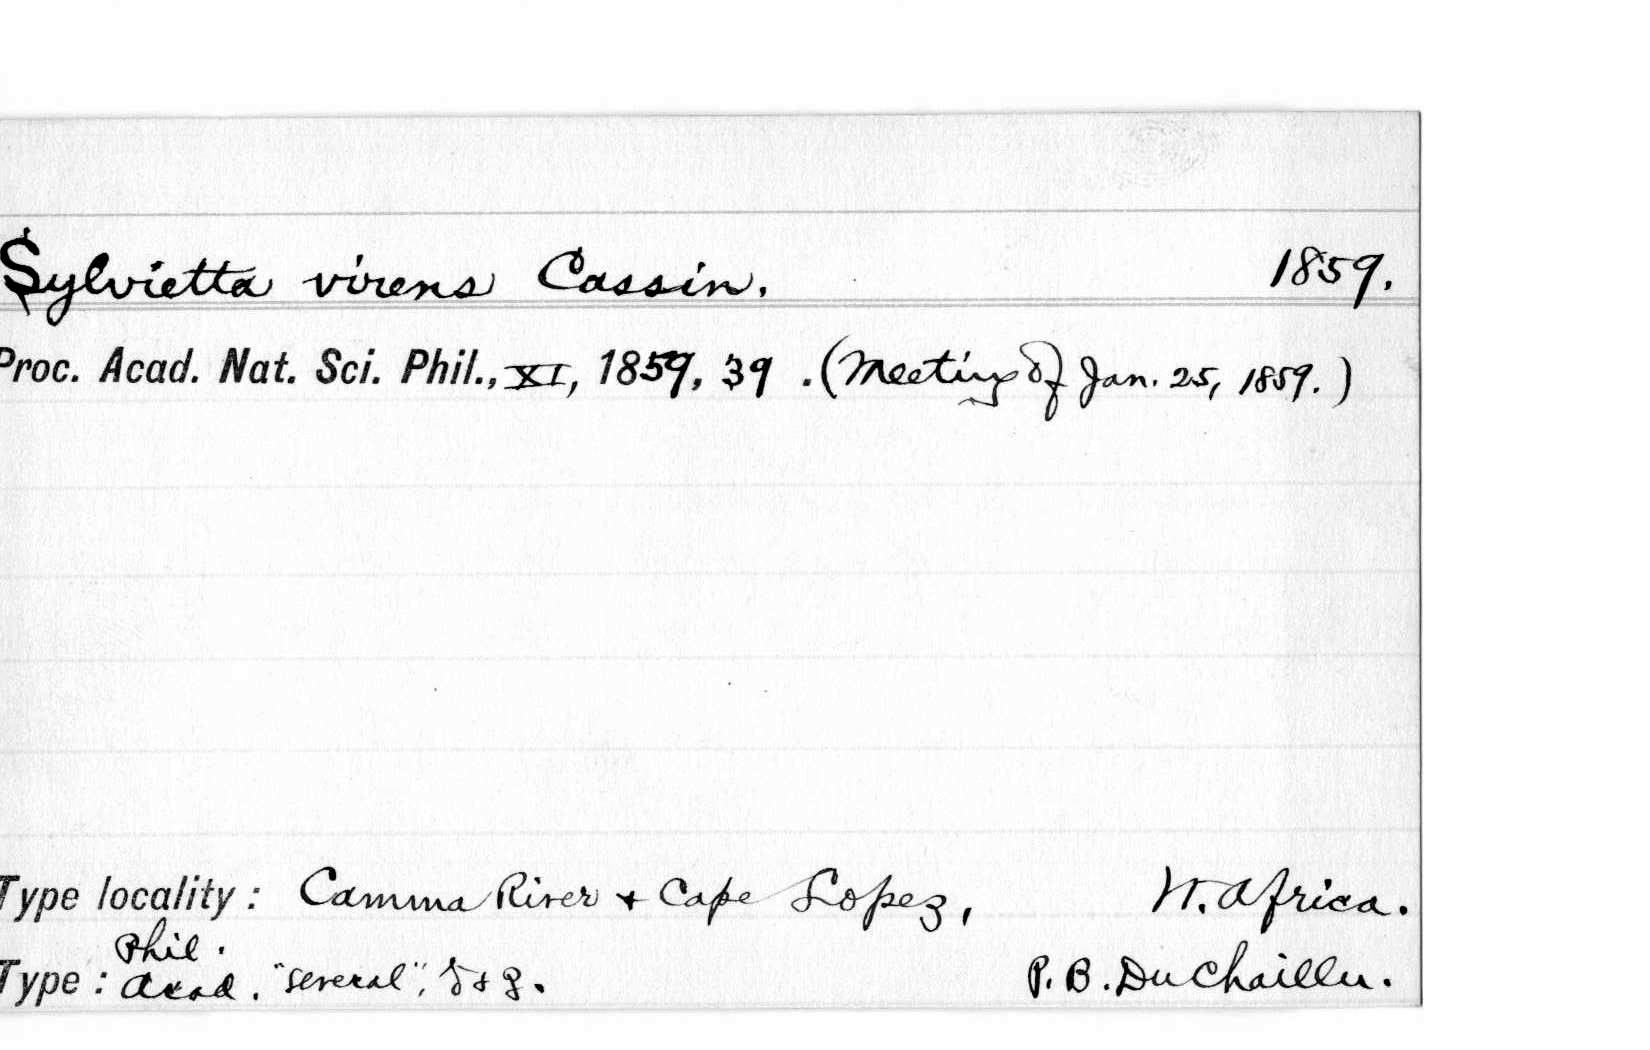 Sylvietta virens Cassin. 1859.
Proc. Acad. Nat. Sci. Phil., XI, 1859, 39 . (Meeting of Jan. 25, 1859.)
Type locality: Camma River + Cape Lopez, W. Africa.
Phil.
Type: Acad. "several", ♂ + ♀. P. B. DuChaillu.